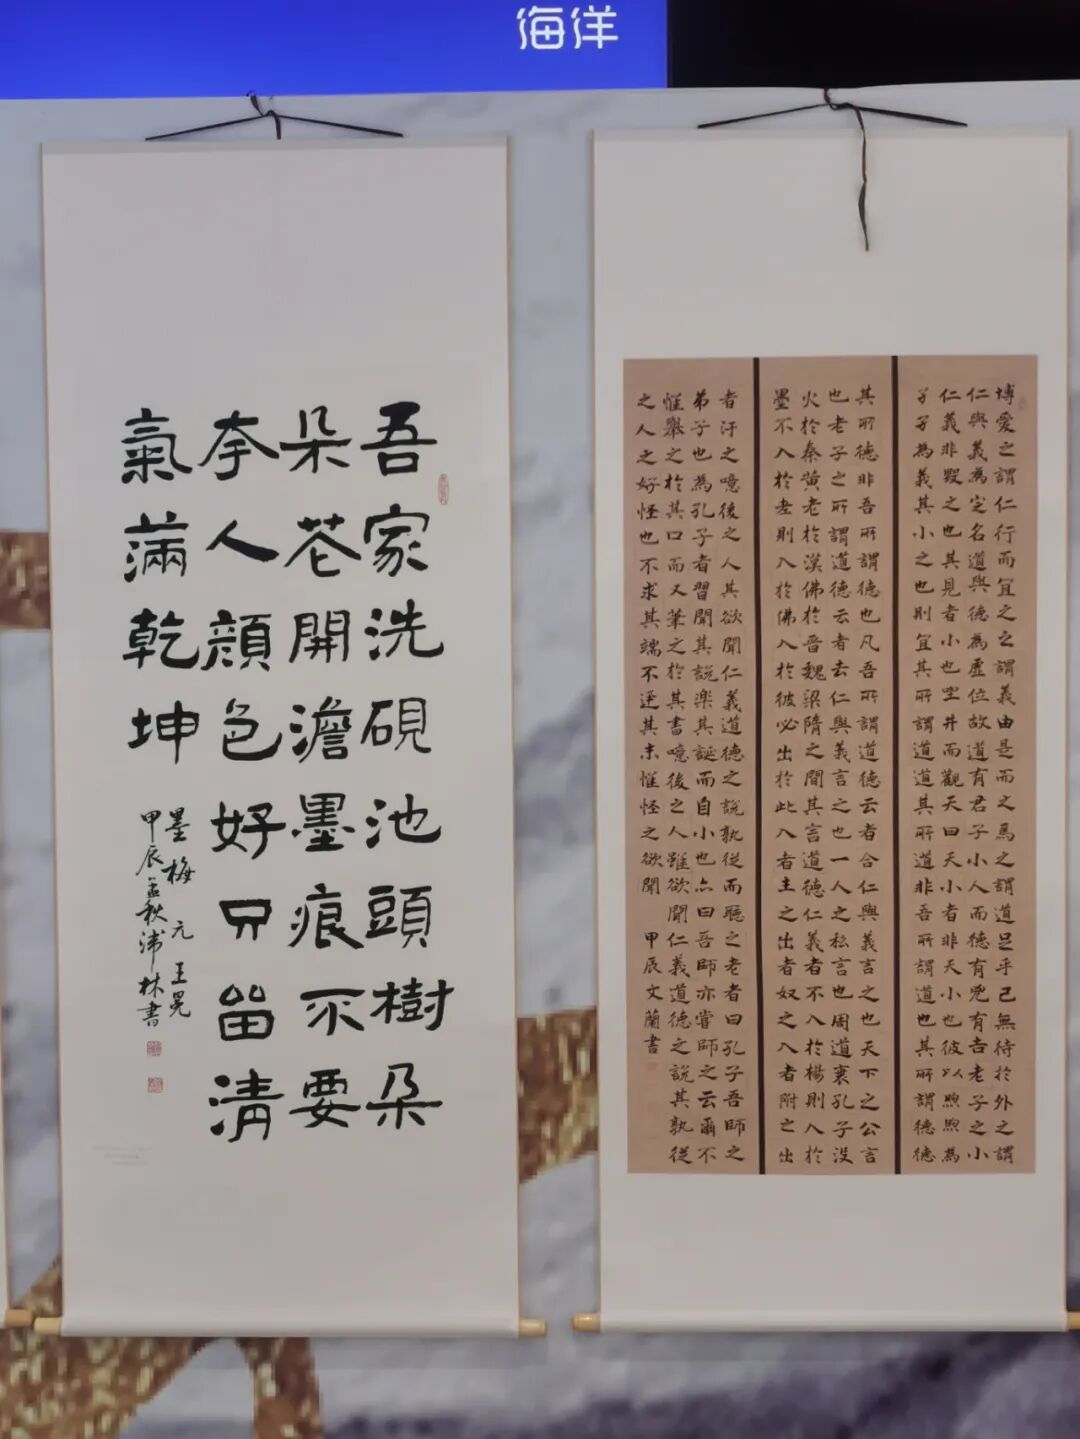 海洋
吾家洗硯池頭樹朵
朵花開澹墨痕不要
夸人顏色好只留清
氣滿乾坤
墨梅 元 王冕
甲辰孟秋沛林書
博愛之謂仁行而宜之之謂義由是而之焉之謂道足乎己無待於外之謂
仁與義為定名道與德為虛位故道有君子小人而德有兇有吉老子之小
仁義非毀之也其見者小也坐井而觀天曰天小者非天小也彼以煦煦為
孑孑為義其小之也則宜其所謂道道其所道非吾所謂道也其所謂德德
其所德非吾所謂德也凡吾所謂道德云者合仁與義言之也天下之公言
也老子之所謂道德云者去仁與義言之也一人之私言也周道衰孔子沒
火於秦黃老於漢佛於晉魏梁隋之間其言道德仁義者不入於楊則入於
墨不入於老則入於佛入於彼必出於此入者主之出者奴之入者附之出
者汙之噫後之人其欲聞仁義道德之說孰從而聽之老者曰孔子吾師之
弟子也為孔子者習聞其說樂其誕而自小也亦曰吾師亦嘗師之云爾不
惟舉之於其口而又筆之於其書噫後之人雖欲聞仁義道德之說其孰從
之人之好怪也不求其端不訊其末惟怪之欲聞 甲辰文蘭書